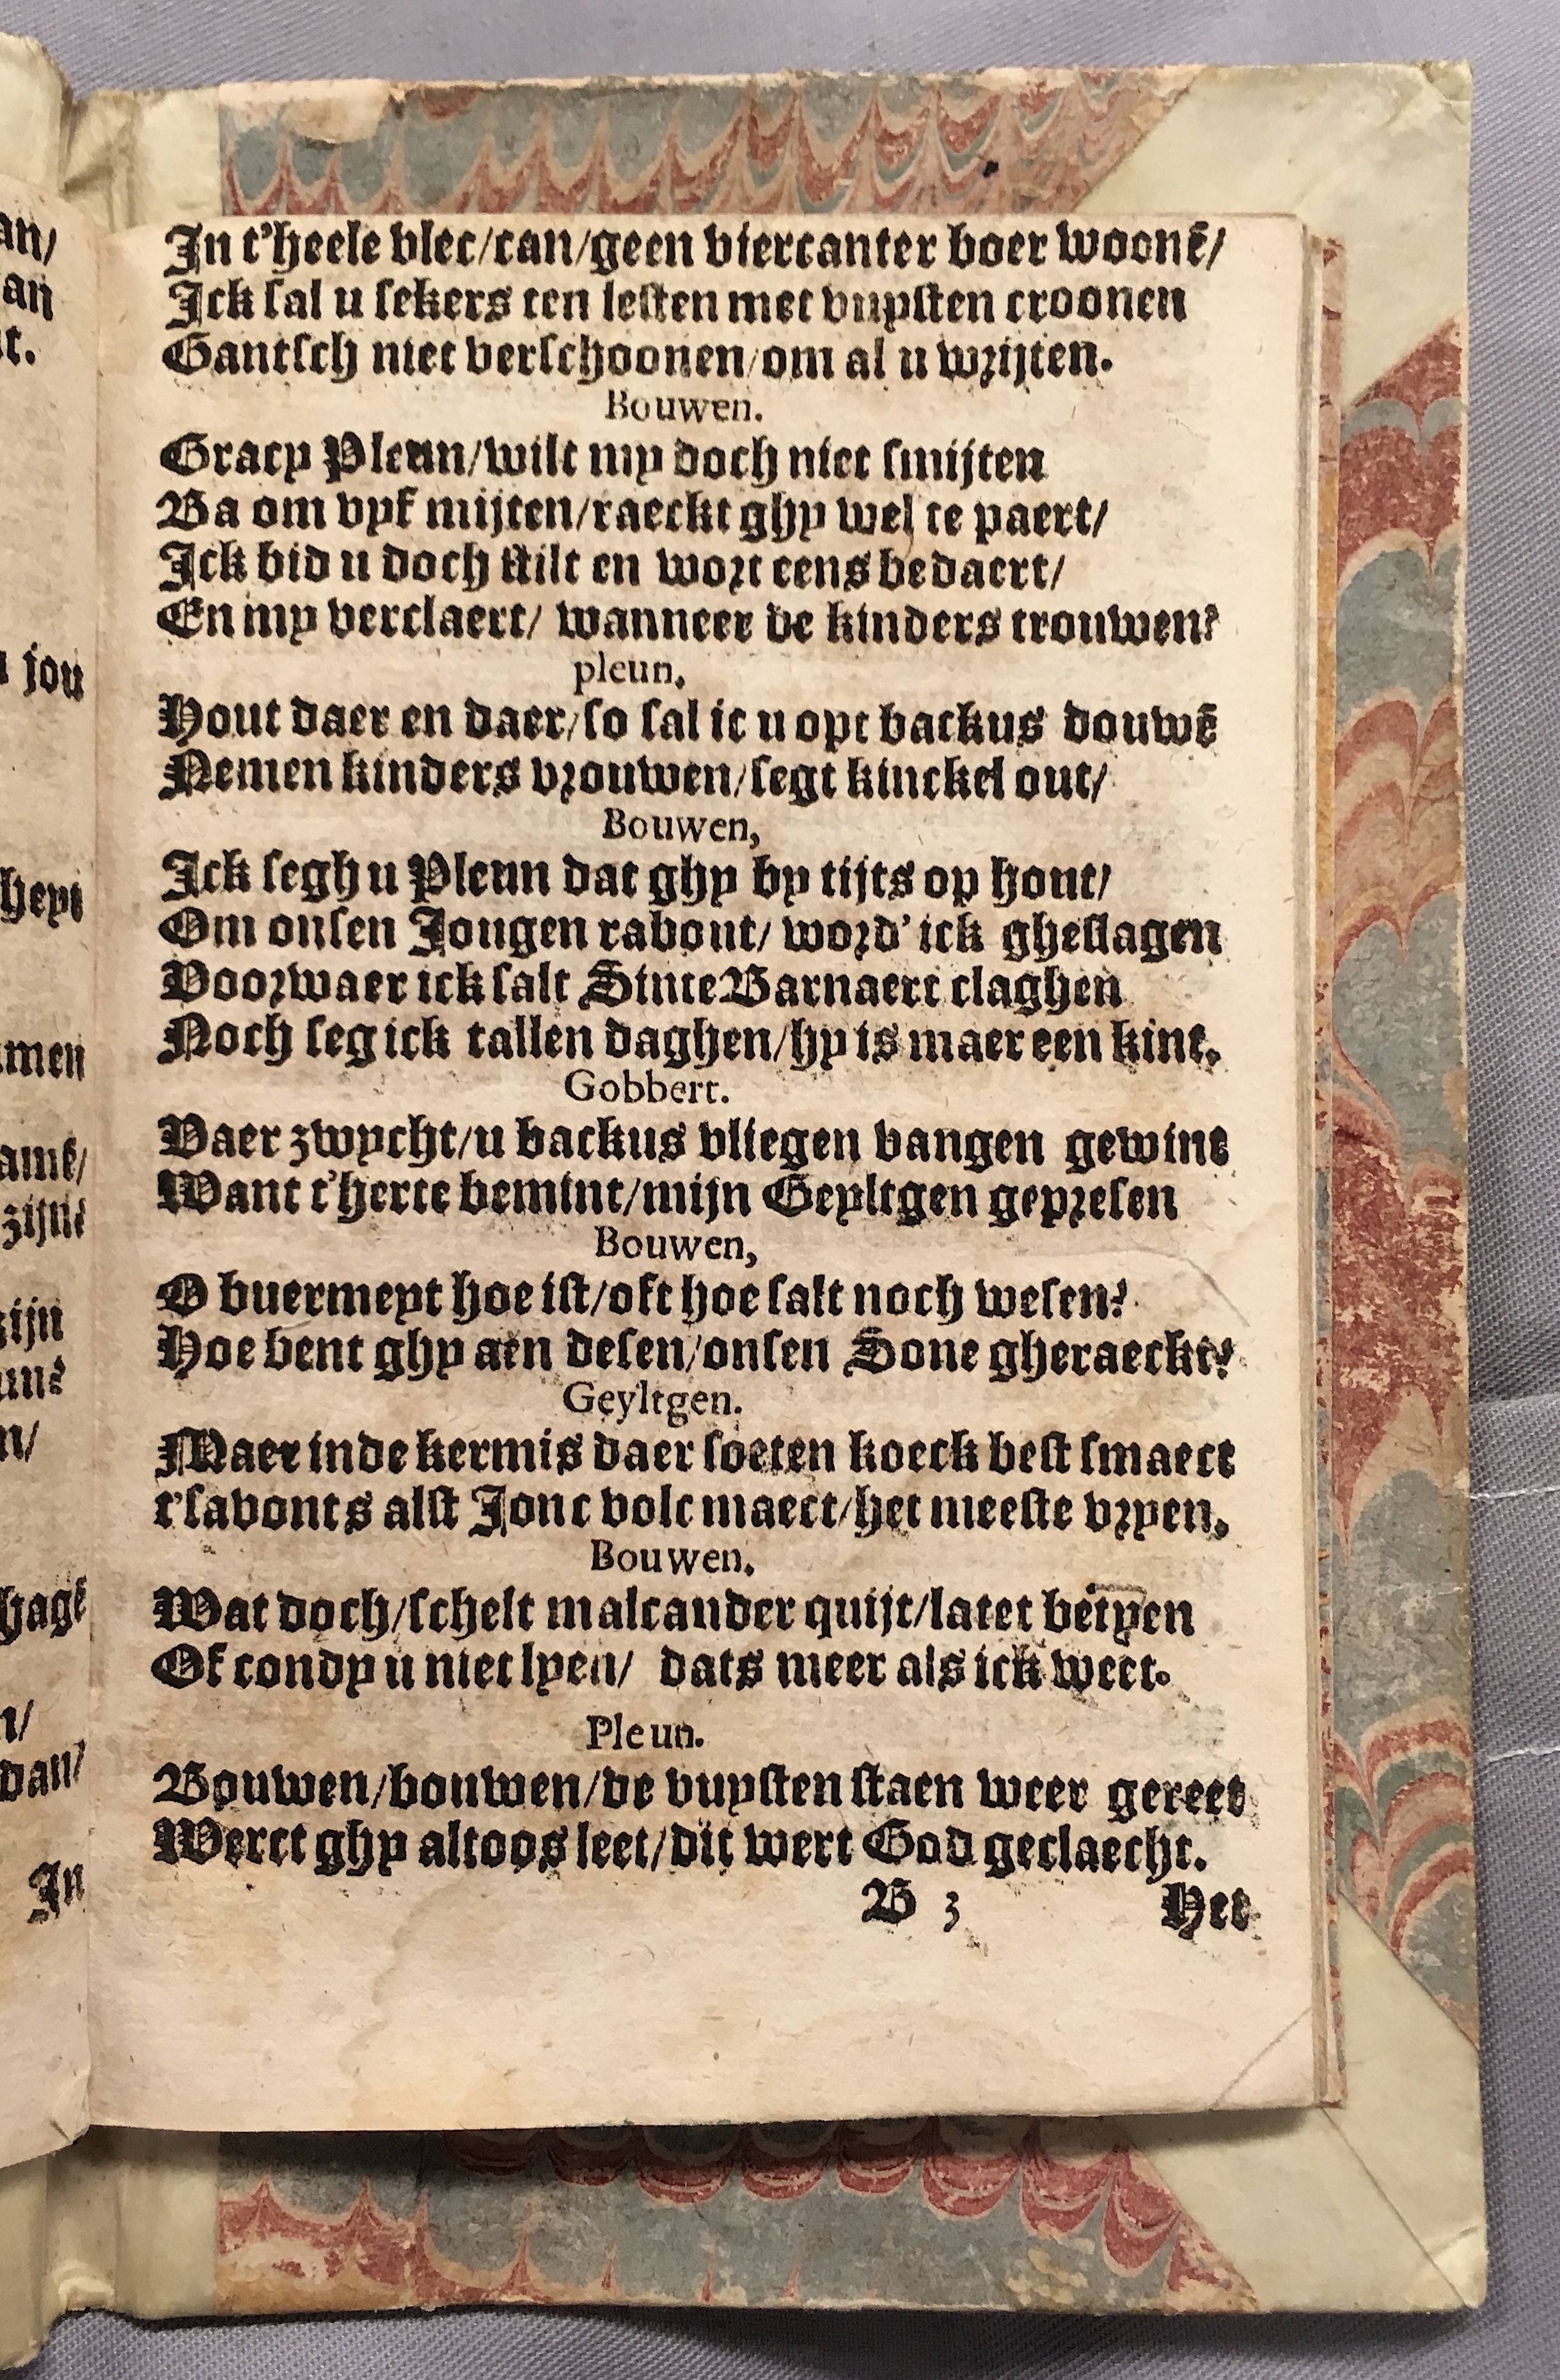 In t'heele vlec/can/geen viercanter boer woonē/
Ick sal u sekers ten lesten met vuysten croonen
Gantsch niet verschoonen/om al u wrijten.
Bouwen.
Gracy Pleun/wilt my doch niet smijten
Ba om vyf mijten/raeckt ghy wel te paert/
Ick bid u doch stilt en wort eens bedaert/
En my verclaert/ wanneer de kinders trouwen?
pleun.
Hout daer en daer/so sal ic u opt backus douwē
Nemen kinders vrouwen/segt kinckel out/
Bouwen,
Ick segh u Pleun dat ghy by tijts op hout/
Om onsen Jongen rabout/ word' ick gheslagen
Voorwaer ick salt Sinte Barnaert claghen
Noch seg ick tallen daghen/hy is maer een kint.
Gobbert.
Vaer zwycht/u backus vliegen vangen gewint
Want t'herte bemint/mijn Geyltgen gepresen
Bouwen,
O buermeyt hoe ist/oft hoe salt noch wesen?
Hoe bent ghy aen desen/onsen Sone gheraeckt?
Geyltgen.
Maer inde kermis daer soeten koeck best smaect
t'savonts alst Jonc volc maect/het meeste vryen.
Bouwen.
Wat doch/schelt malcander quijt/latet betyen
Of condy u niet lyen/ dats meer als ick weet.
Pleun.
Bouwen/bouwen/de vuysten staen weer gereet
Werct ghy altoos leet/dit wert God geclaecht.
B 3 Het
an/
an
t.
jou
heyt
men
amē/
zijnē
zijn
un?
n/
hagē
n/
dan/
In